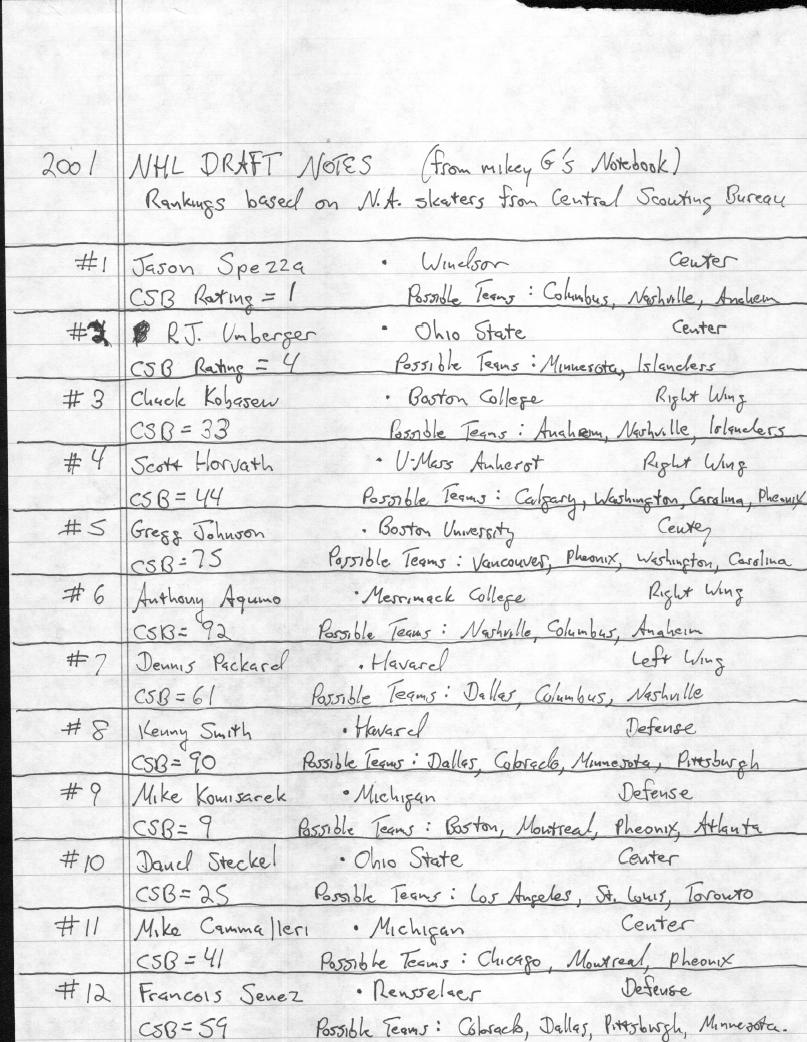 2001 NHL DRAFT NOTES (from mikey G's Notebook)
Rankings based on N.A. skaters from Central Scouting Bureau
#1 Jason Spezza • Windsor Center
CSB Rating = 1 Possible Teams: Columbus, Nashville, Anaheim
#2 R.J. Umberger • Ohio State Center
CSB Rating = 4 Possible Teams: Minnesota, Islanders
#3 Chuck Kobasew • Boston College Right Wing
CSB = 33 Possible Teams: Anaheim, Nashville, Islanders
#4 Scott Horvath • U-Mass Amherst Right Wing
CSB = 44 Possible Teams: Calgary, Washington, Carolina, Pheonix
#5 Gregg Johnson • Boston University Center
CSB = 75 Possible Teams: Vancouver, Pheonix, Washington, Carolina
#6 Anthony Aquino • Merrimack College Right Wing
CSB = 92 Possible Teams: Nashville, Columbus, Anaheim
#7 Dennis Packard • Havard Left Wing
CSB = 61 Possible Teams: Dallas, Columbus, Nashville
#8 Kenny Smith • Havard Defense
CSB = 90 Possible Teams: Dallas, Colorado, Minnesota, Pittsburgh
#9 Mike Komisarek • Michigan Defense
CSB = 9 Possible Teams: Boston, Montreal, Pheonix, Atlanta
#10 David Steckel • Ohio State Center
CSB = 25 Possible Teams: Los Angeles, St. Louis, Toronto
#11 Mike Cammalleri • Michigan Center
CSB = 41 Possible Teams: Chicago, Montreal, Pheonix
#12 Francois Senez • Rensselaer Defense
CSB = 59 Possible Teams: Colorado, Dallas, Pittsburgh, Minnesota.